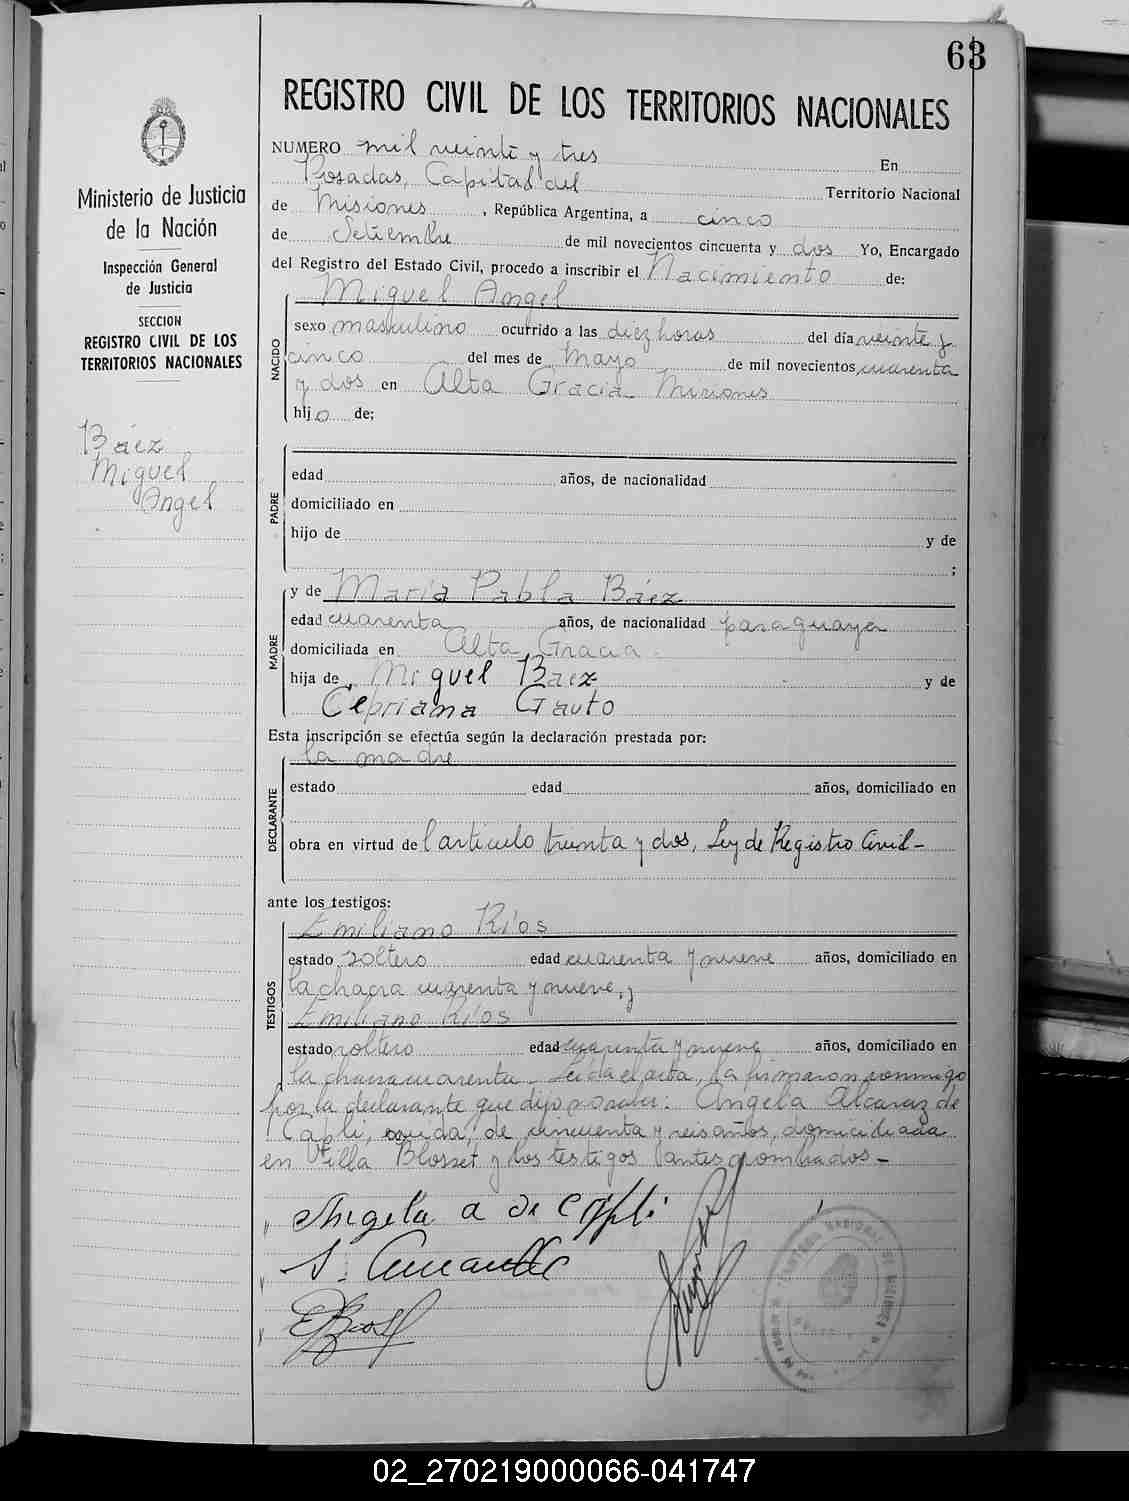 63
REGISTRO CIVIL DE LOS TERRITORIOS NACIONALES
Ministerio de Justicia
de la Nación
Inspección General
de Justicia
SECCION
REGISTRO CIVIL DE LOS
TERRITORIOS NACIONALES
Báez
Miguel
Angel
NUMERO mil veinte y tres En
Posadas, Capital del Territorio Nacional
de Misiones, República Argentina, a cinco
de Setiembre de mil novecientos cincuenta y dos Yo, Encargado
del Registro del Estado Civil, procedo a inscribir el Nacimiento de:
NACIDO
Miguel Angel
sexo masculino ocurrido a las diez horas del día veinte y
cinco del mes de Mayo de mil novecientos cuarenta
y dos en Alta Gracia Misiones
hijo de;
PADRE
edad años, de nacionalidad
domiciliado en
hijo de y de
;
MADRE
y de María Pabla Báez
edad cuarenta años, de nacionalidad paraguaya
domiciliada en Alta Gracia.
hija de Miguel Baez y de
Cepriana Gauto
Esta inscripción se efectúa según la declaración prestada por:
DECLARANTE
la madre
estado edad años, domiciliado en
obra en virtud de l artículo trenta y dos, Ley de Registro Civil-
ante los testigos:
TESTIGOS
Emiliano Ríos
estado soltero edad cuarenta y nueve años, domiciliado en
la chacra cuarenta y nueve, y
Emiliano Ríos
estado soltero edad cuarenta y nueve años, domiciliado en
la chacra cuarenta. Leida el acta, la firmaron conmigo
por la declarante que dijo no saber: Angela Alcaraz de
Capli, de cincuenta y seis años, domiciliada
en Villa Blosset y los testigos antes nombrados-
Angela a de Capli
02_270219000066-041747